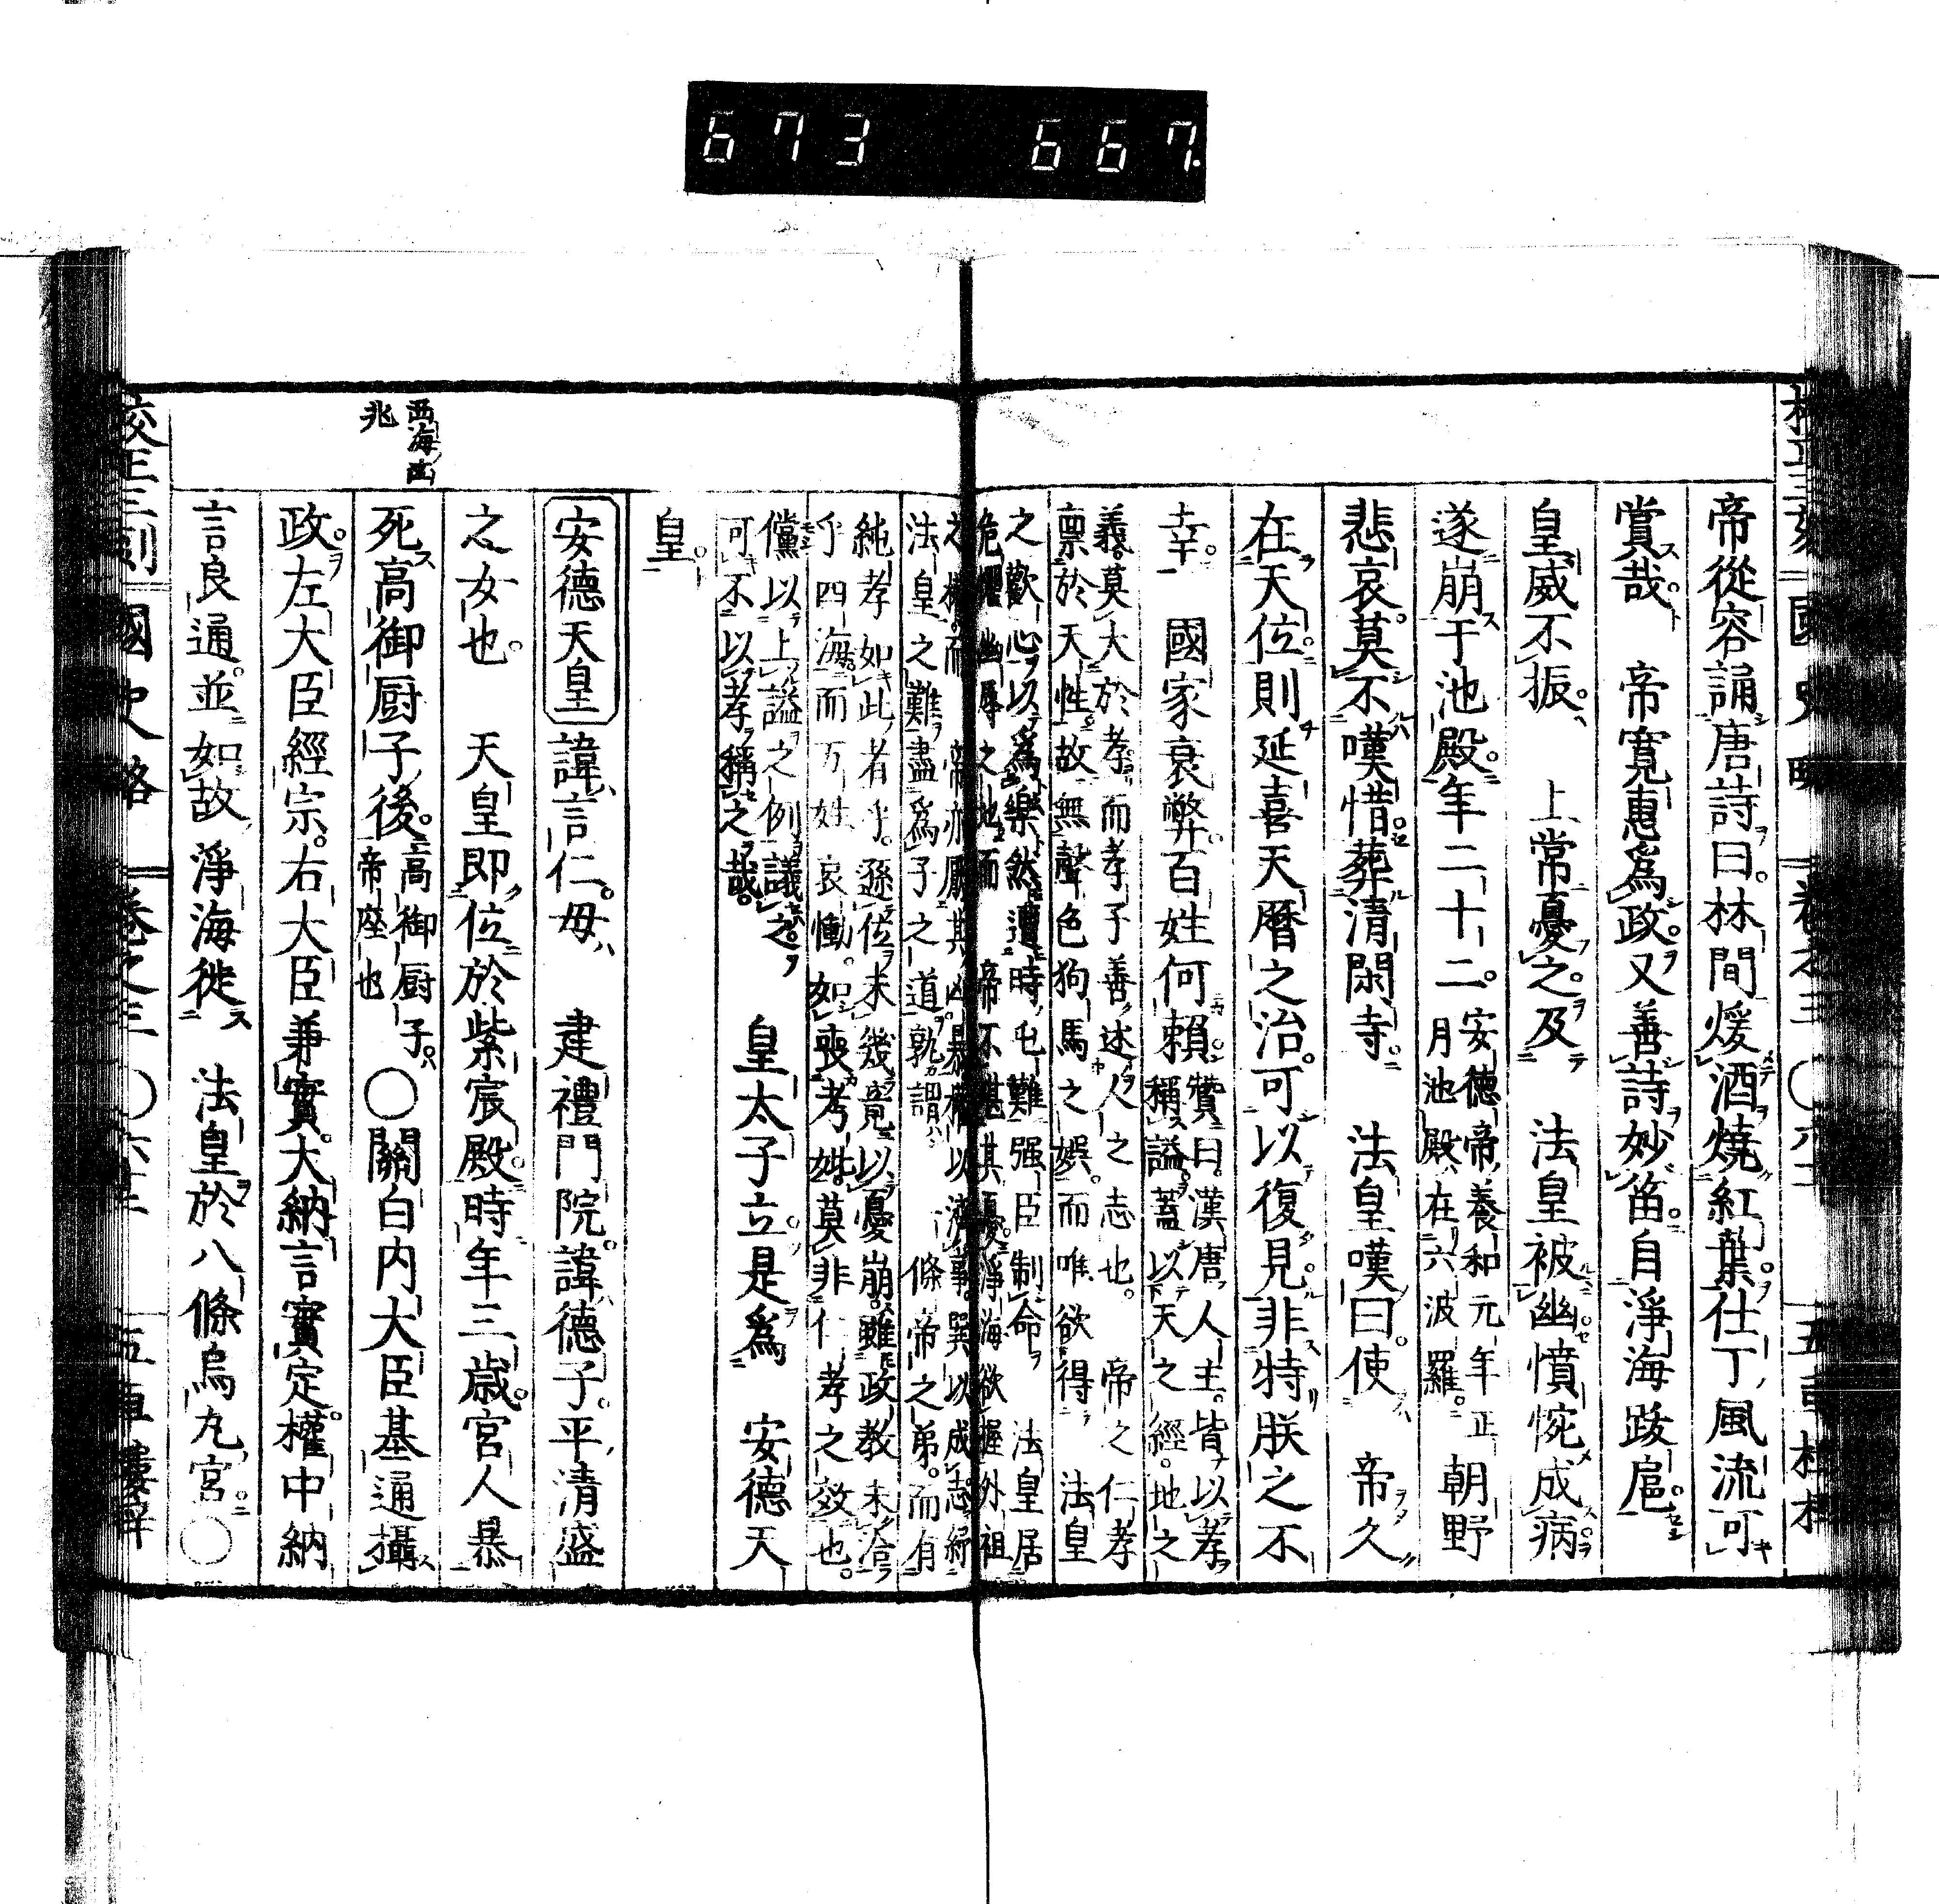 673 667
帝從容誦唐詩曰林間煖酒燒紅葉仕丁風流可
賞哉 帝寬惠爲政又善詩妙笛自淨海跋扈
皇威不振 上常憂之及 法皇被幽憤惋成病
遂崩于池殿年二十二
安德帝養和元年正
月池殿在六波羅
朝野
悲哀莫不嘆惜葬清閑寺 法皇嘆曰使 帝久
在天位則延喜天曆之治可以復見非特朕之不
幸 國家衰弊百姓何賴
贊曰漢唐人主皆以孝
稱謚蓋以天之經地之
義莫大於孝而孝子善述人之志也 帝之仁孝
禀於天性故無聲色狗馬之娛而唯欲得 法皇
之歡心以爲樂然遭時屯難强臣制命 法皇居
危懼幽辱之地而 帝不堪其憂淨海欲握外祖
之權而 帝亦厭其凶暴權以濟事巽以成志紓
法皇之難盡爲子之道孰謂 一條帝之弟而有
純孝如此者乎遜位未幾竟以憂崩雖政教未洽
乎四海而万姓哀慟如喪考妣莫非仁孝之效也
儻以上謚之例議之
可不以孝稱之哉
皇太子立是爲 安德天
皇
安德天皇 諱言仁母 建禮門院諱德子平清盛
之女也 天皇即位於紫宸殿時年三歲宮人暴
死高御厨子後
高御厨子
帝座也
○關白内大臣基通攝
政左大臣經宗右大臣兼實大納言實定權中納
言良通並如故淨海徙 法皇於八條烏丸宮○
西海凶
兆
校正三刻 國史略 卷之三 ○六十 五車樓梓